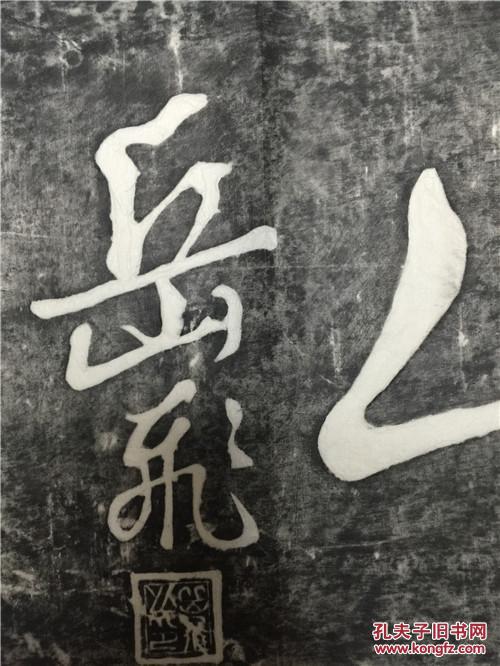 岳飛
孔夫子旧书网
www.kongfz.com